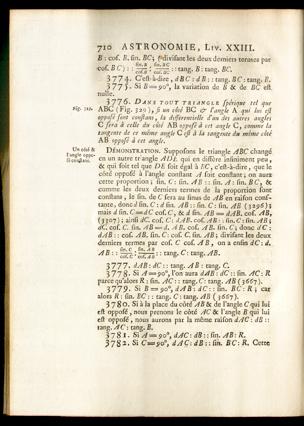 710 ASTRONOMIE, LIV. XXIII.
B : cos. B. sin. BC ; & divisant les deux derniers termes par
cos. BC ) : : sin. B / cos. B : sin. BC / cos. BC : : tang. B : tang. BC.
3774. C'est-à-dire, dBC : dB : : tang. BC : tang. B.
3775. Si B = 90°, la variation de B & de BC est
nulle.
3776. DANS TOUT TRIANGLE sphérique tel que
Fig. 320. ABC (Fig. 320), si un côté BC & l'angle A qui lui est
opposé sont constans, la différentielle d'un des autres angles
C sera à celle du côté AB opposé à cet angle C, comme la
tangente de ce même angle C est à la tangente du même côté
AB opposé à cet angle.
Un côté &
l'angle oppo-
sé constans.
DÉMONSTRATION. Supposons le triangle ABC changé
en un autre triangle ADE qui en differe infiniment peu,
& qui soit tel que DE soit égal à BC, c'est-à-dire, que le
côté opposé à l'angle constant A soit constant ; on aura
cette proportion ; sin. C : sin. AB : : sin. A : sin. BC, &
comme les deux derniers termes de la proportion sont
constans, le sin. de C sera au sinus de AB en raison cons-
tante, donc d sin. C : d sin. AB : : sin. C : sin. AB (3296) ;
mais d sin. C = dC cos. C, & d sin. AB = dAB. cos. AB,
(3307) ; ainsi dC. cos. C : dAB. cos. AB : : sin. C : sin. AB ;
dC. cos. C. sin. AB = d. AB. cos. AB. sin. C ; donc dC :
dAB : : cos. AB. sin. C : cos. C. sin. AB ; divisant les deux
derniers termes par cos. C cos. AB, on a enfin dC : d.
AB : : sin. C / cos. C : sin. AB / cos. AB : : tang. C : tang. AB.
3777. dAB : dC : : tang. AB : tang. C.
3778. Si A = 90°, l'on aura dAB : dC : : sin. AC : R
parce qu'alors R : sin. AC : : tang. C : tang. AB (3667).
3779. Si B = 90°, dAB : dC : : sin. BC : R ; car
alors R : sin. BC : : tang. C : tang. AB (3667).
3780. Si à la place du côté AB & de l'angle C qui lui
est opposé, nous prenons le côté AC & l'angle B qui lui
est opposé, nous aurons par la même raison dAC : dB : :
tang. AC : tang. B.
3781. Si A = 90°, dAC : dB : : sin. AB : R.
3782. Si C = 90°, dAC : dB : : sin. BC : R. Cette